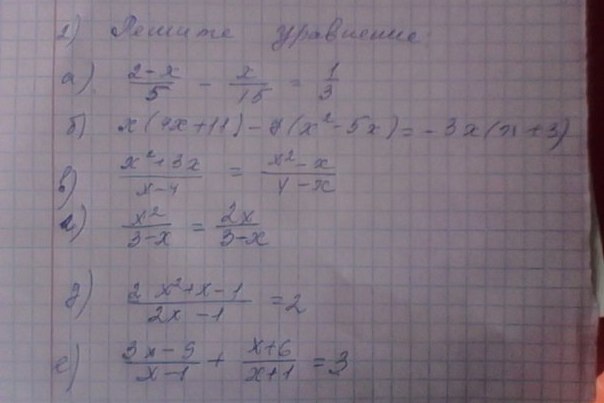 2) Решите уравнение:
а) (2-x)/5 - x/15 = 1/3
б) x(7x+11) - 7(x²-5x) = -3x(x+3)
в) (x²+3x)/(x-4) = (x²-x)/(4-x)
г) x²/(3-x) = 2x/(3-x)
д) (2x²+x-1)/(2x-1) = 2
е) (3x-9)/(x-1) + (x+6)/(x+1) = 3